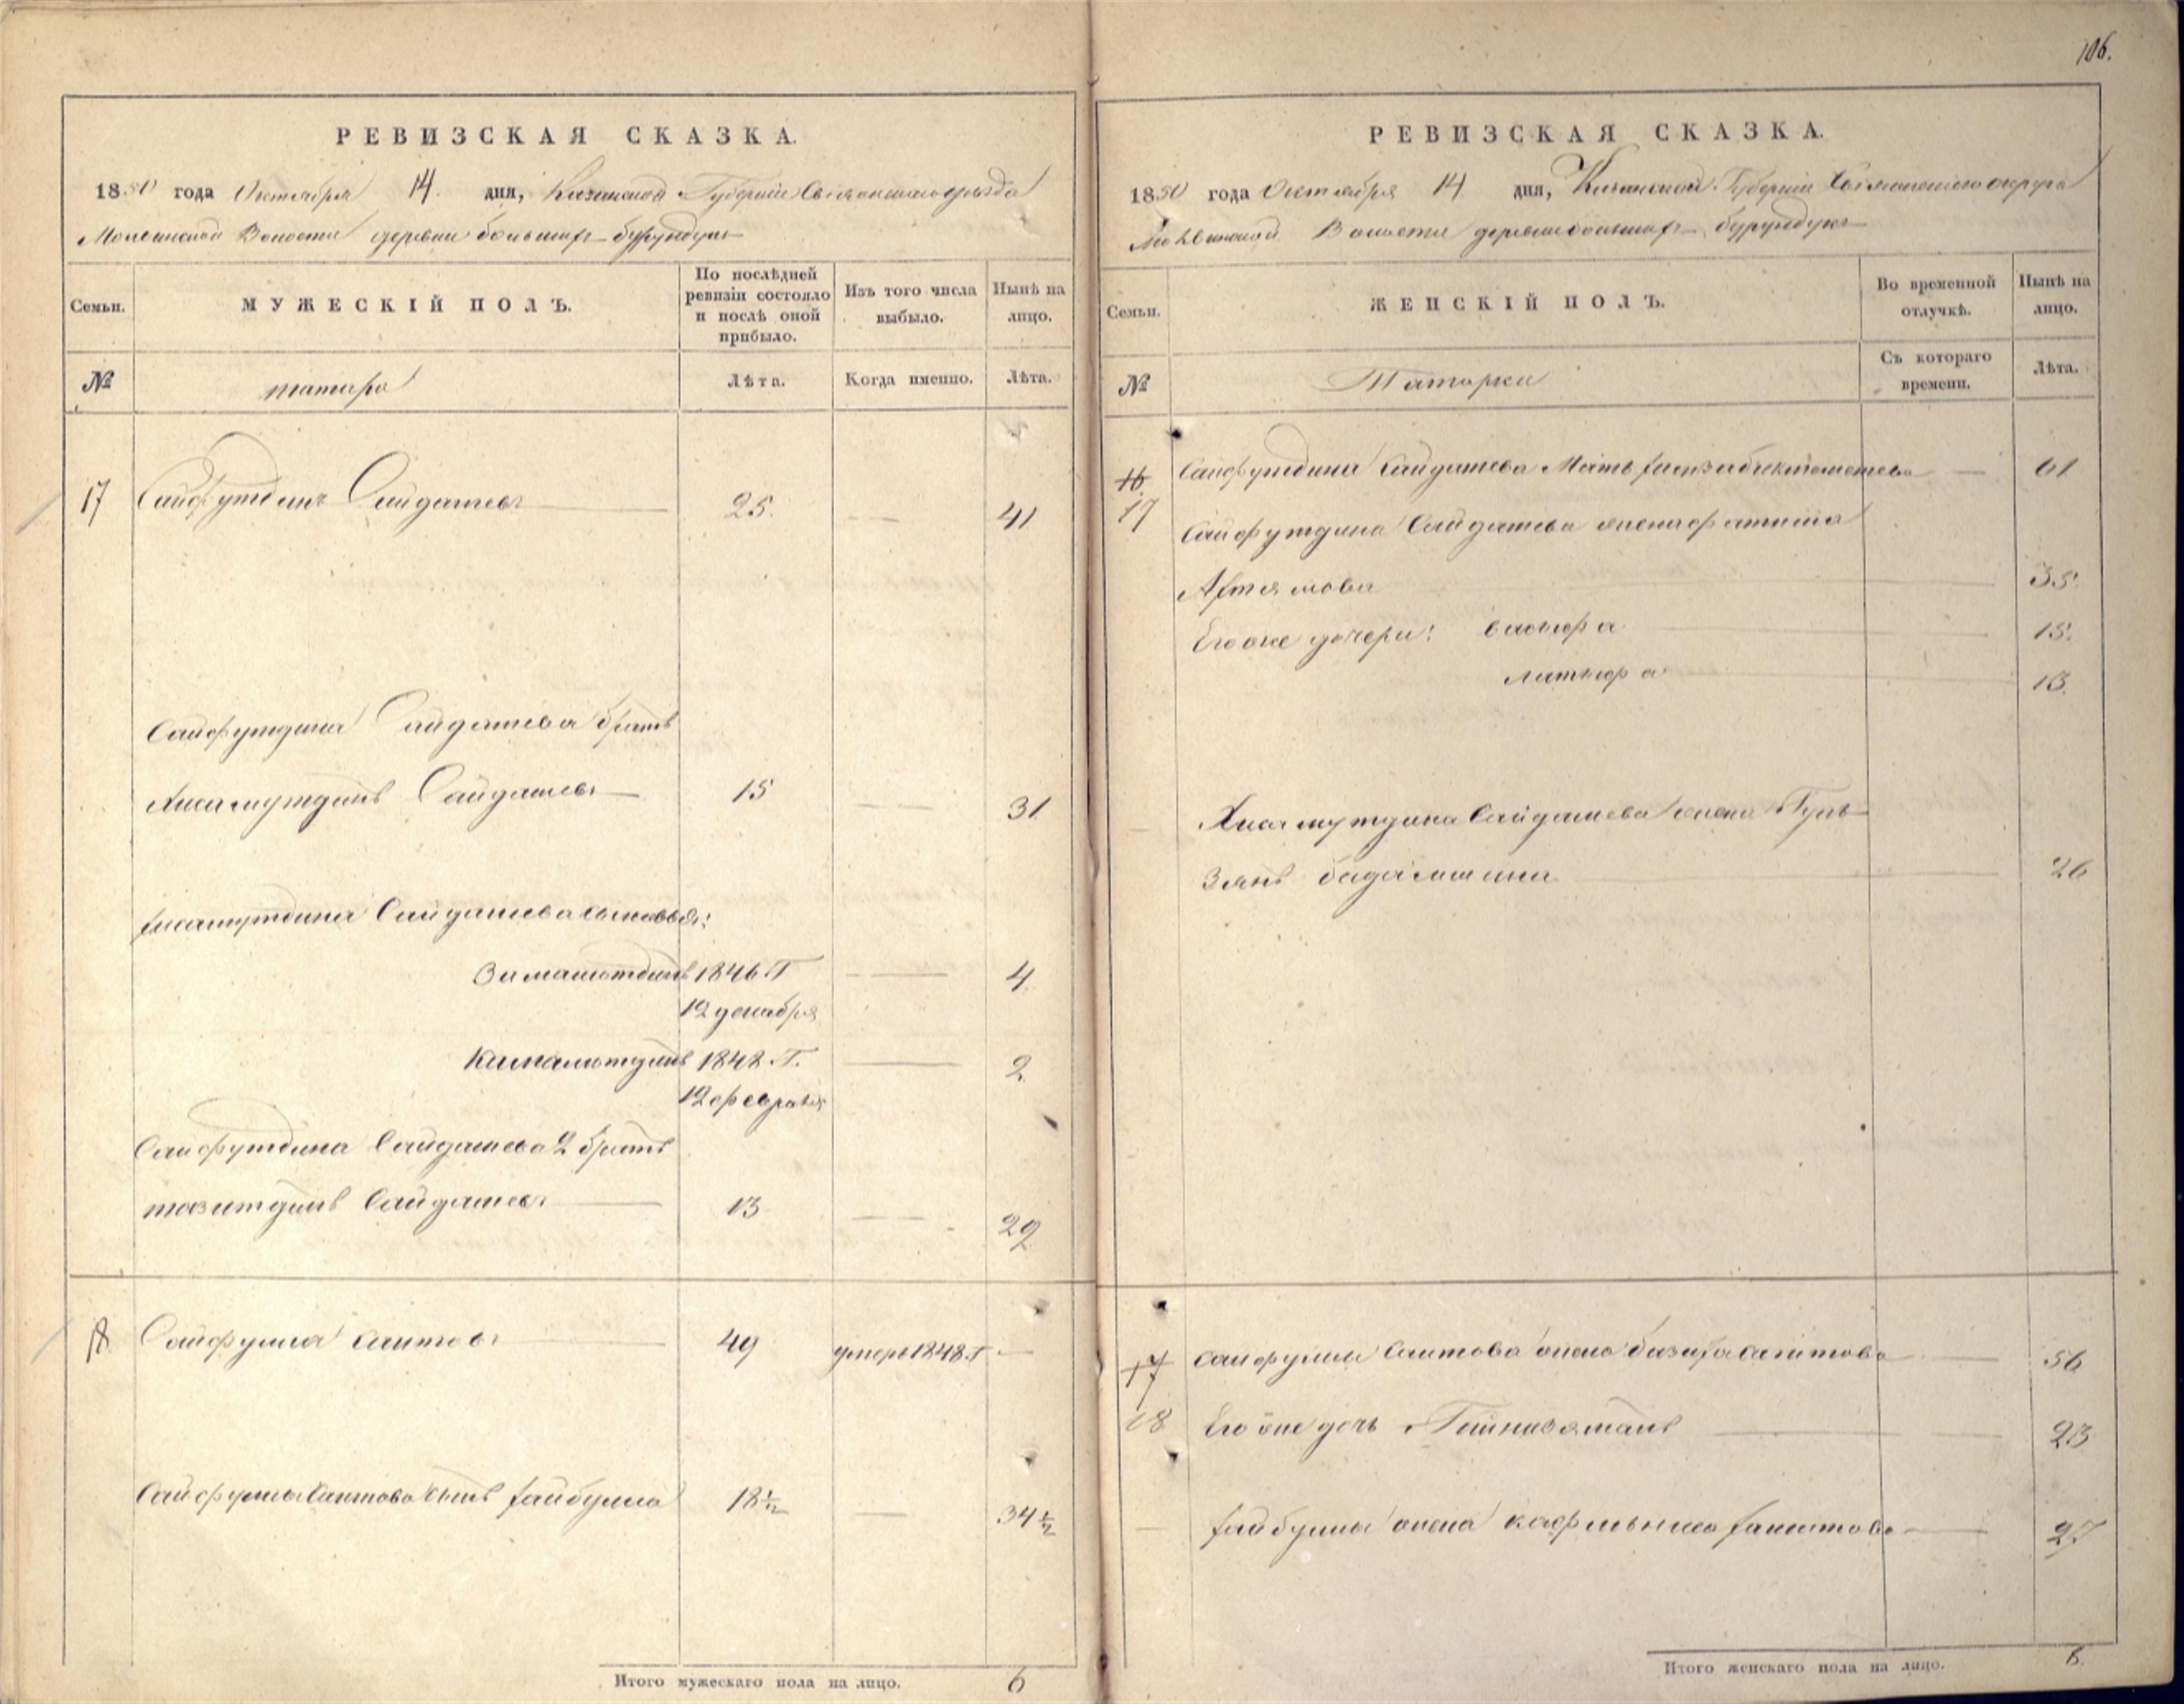 106.
РЕВИЗСКАЯ СКАЗКА.
1850 года Октября 14 дня, Казанской Губернии Свіяжскаго уѣзда
Волости деревни большихъ бурундукъ
Семьи.
МУЖЕСКІЙ ПОЛЪ.
По послѣдней ревизіи состояло и послѣ оной прибыло.
Изъ того числа выбыло.
Нынѣ на лицо.
№
татара
Лѣта.
Когда именно.
Лѣта.
17 Сайфутдинъ Сайдашевъ 25. 41
Сайфутдина Сайдашева братъ
Хисамутдинъ Сайдашевъ 15 31
Хисамутдина Сайдашева сыновья:
Зималютдинъ 1846 Г 4
12 декабря
Камалютдинъ 1848 Г. 2
12 февраля
Сайфутдина Сайдашева 2 братъ
тазитдинъ Сайдашевъ 13 29
18 Сайфулла Саитовъ 49 умеръ 1848 Г —
Сайфуллы Саитова сынъ Хайбулла 18½ 34½
Итого мужескаго пола на лицо. 6
РЕВИЗСКАЯ СКАЗКА.
1850 года Октября 14 дня, Казанской Губерніи округа
Волости деревни большихъ бурундукъ
Семьи.
ЖЕНСКІЙ ПОЛЪ.
Во временной отлучкѣ.
Нынѣ на лицо.
№
Татарки
Съ котораго времени.
Лѣта.
16 Сайфутдина Сайдашева Мать 61
17 Сайфутдина Сайдашева жена
Ахтямова 35
Его же дочери: 15
13
Хисамутдина Сайдашева жена Гуль
Зянъ бадамшина 26
17 Сайфуллы Саитова жена Сагитова 56
18 Его же дочь 23
Хайбуллы жена Хамитова 27
Итого женскаго пола на лицо. 8.